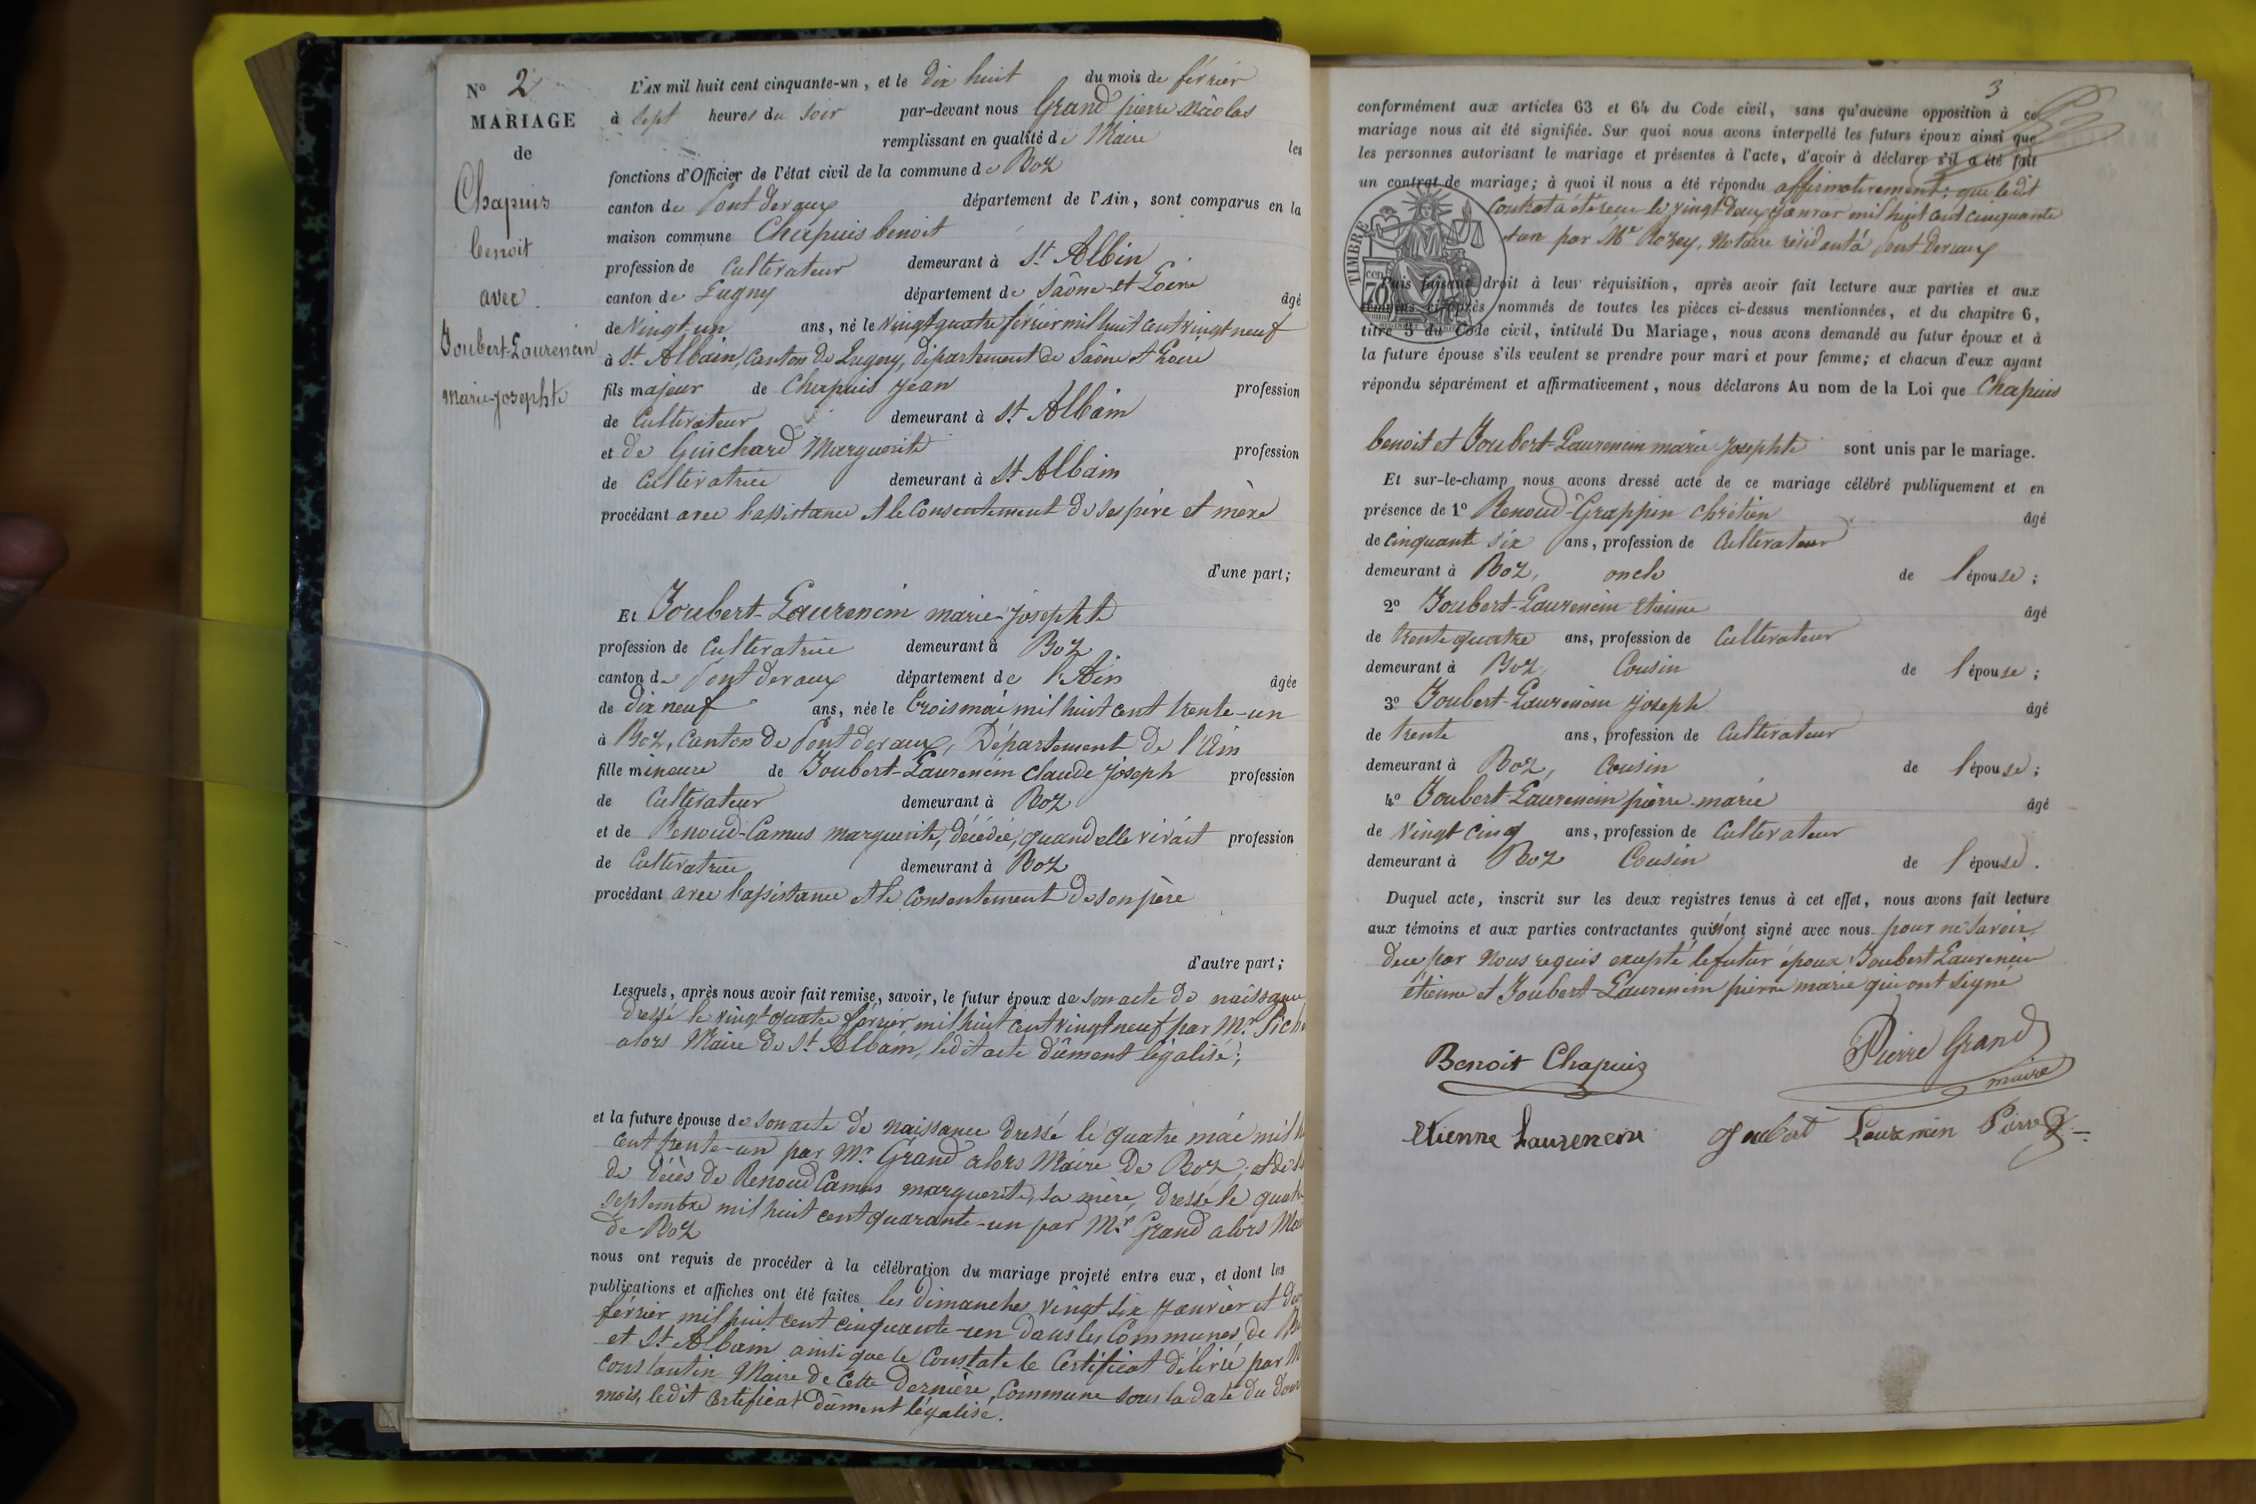 N° 2
MARIAGE
de
Chapuis
benoit
avec
Joubert-Laurencin
marie-josephte
L'AN mil huit cent cinquante-un, et le dix huit du mois de février
à sept heures du soir par-devant nous Grand pierre Nicolas
remplissant en qualité de Maire les
fonctions d'Officier de l'état civil de la commune de Boz
canton de Pont devaux département de l'Ain, sont comparus en la
maison commune Chapuis benoit
profession de Cultivateur demeurant à St Albin
canton de Lugny département de Saône et Loire âgé
de vingt-un ans, né le vingt quatre février mil huit cent vingt neuf
à St Albain, canton de Lugny, département de Saône et Loire
fils majeur de Chapuis Jean profession
de Cultivateur demeurant à St Albain
et de Guichard Marguerite profession
de Cultivatrice demeurant à St Albain
procédant avec l'assistance et le Consentement de ses père et mère
d'une part;
Et Joubert-Laurencin marie-josephte
profession de Cultivatrice demeurant à Boz
canton de Pont devaux département de l'Ain âgée
de Dix neuf ans, née le trois mai mil huit cent trente-un
à Boz, canton de Pont devaux, Département de l'Ain
fille mineure de Joubert-Laurencin claude joseph profession
de Cultivateur demeurant à Boz
et de Renoud-Camus marguerite, décédée, quand elle vivait profession
de Cultivatrice demeurant à Boz
procédant avec l'assistance et le consentement de son père
d'autre part;
Lesquels, après nous avoir fait remise, savoir, le futur époux de son acte de naissance
dressé le vingt quatre février mil huit cent vingt neuf par Mr
alors Maire de St Albain, ledit acte dûment légalisé;
et la future épouse de son acte de naissance dressé le quatre mai mil
cent trente-un par Mr Grand alors Maire de Boz; et de
de décès de Renoud Camus marguerite, sa mère, dressé le
septembre mil huit cent quarante-un par Mr Grand alors
de Boz
nous ont requis de procéder à la célébration du mariage projeté entre eux, et dont les
publications et affiches ont été faites les dimanches vingt six janvier et
février mil huit cent cinquante-un dans les Communes de
et St Albain ainsi que le Constate le Certificat délivré par
constantin Maire de Cette Dernière Commune sous la date du
mois, ledit Certificat Dûment légalisé.
3
conformément aux articles 63 et 64 du Code civil, sans qu'aucune opposition à ce
mariage nous ait été signifiée. Sur quoi nous avons interpellé les futurs époux ainsi que
les personnes autorisant le mariage et présentes à l'acte, d'avoir à déclarer s'il a été fait
un contrat de mariage; à quoi il nous a été répondu affirmativement; que ledit
Contrat a été reçu le vingt deux janvier mil huit cent cinquante
un par Me Rozey, Notaire résidant à Pont devaux
TIMBRE
70
Puis faisant droit à leur réquisition, après avoir fait lecture aux parties et aux
témoins ci-après nommés de toutes les pièces ci-dessus mentionnées, et du chapitre 6,
titre 5 du Code civil, intitulé Du Mariage, nous avons demandé au futur époux et à
la future épouse s'ils veulent se prendre pour mari et pour femme; et chacun d'eux ayant
répondu séparément et affirmativement, nous déclarons Au nom de la Loi que Chapuis
benoit et Joubert-Laurencin marie-josephte sont unis par le mariage.
Et sur-le-champ nous avons dressé acte de ce mariage célébré publiquement et en
présence de 1° Renoud-Grappin chrétien âgé
de cinquante six ans, profession de Cultivateur
demeurant à Boz, oncle de l'épouse;
2° Joubert-Laurencin étienne âgé
de trente quatre ans, profession de Cultivateur
demeurant à Boz, Cousin de l'épouse;
3° Joubert-Laurencin joseph âgé
de trente ans, profession de Cultivateur
demeurant à Boz, Cousin de l'épouse;
4° Joubert-Laurencin pierre-marie âgé
de vingt cinq ans, profession de Cultivateur
demeurant à Boz Cousin de l'épouse.
Duquel acte, inscrit sur les deux registres tenus à cet effet, nous avons fait lecture
aux témoins et aux parties contractantes qui n'ont signé avec nous pour ne savoir
de ce par Nous requis excepté le futur époux, Joubert Laurencin
étienne et Joubert-Laurencin pierre marie qui ont signé
Benoit Chapuis
Pierre Grand
maire
Etienne Laurencin
Joubert Laurencin Pierre